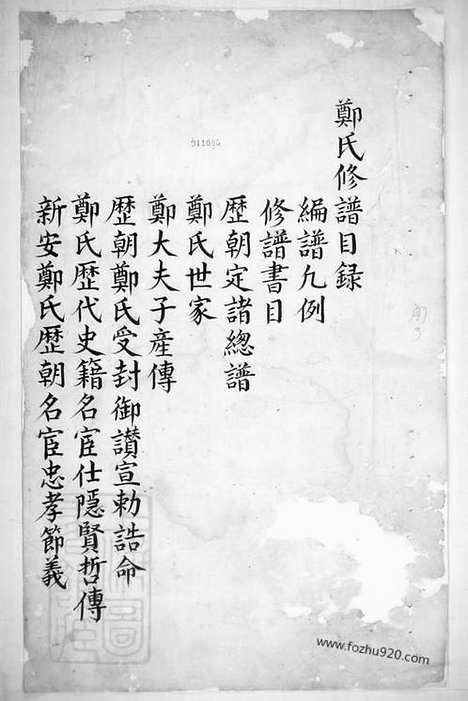 鄭氏修譜目録
編譜凢例
修譜書目
歴朝定諸總譜
鄭氏世家
鄭大夫子産傳
歴朝鄭氏受封御讃宣勅誥命
鄭氏歴代史籍名宦仕隱賢哲傳
新安鄭氏歴朝名宦忠孝節義
911095
www.fozhu920.com